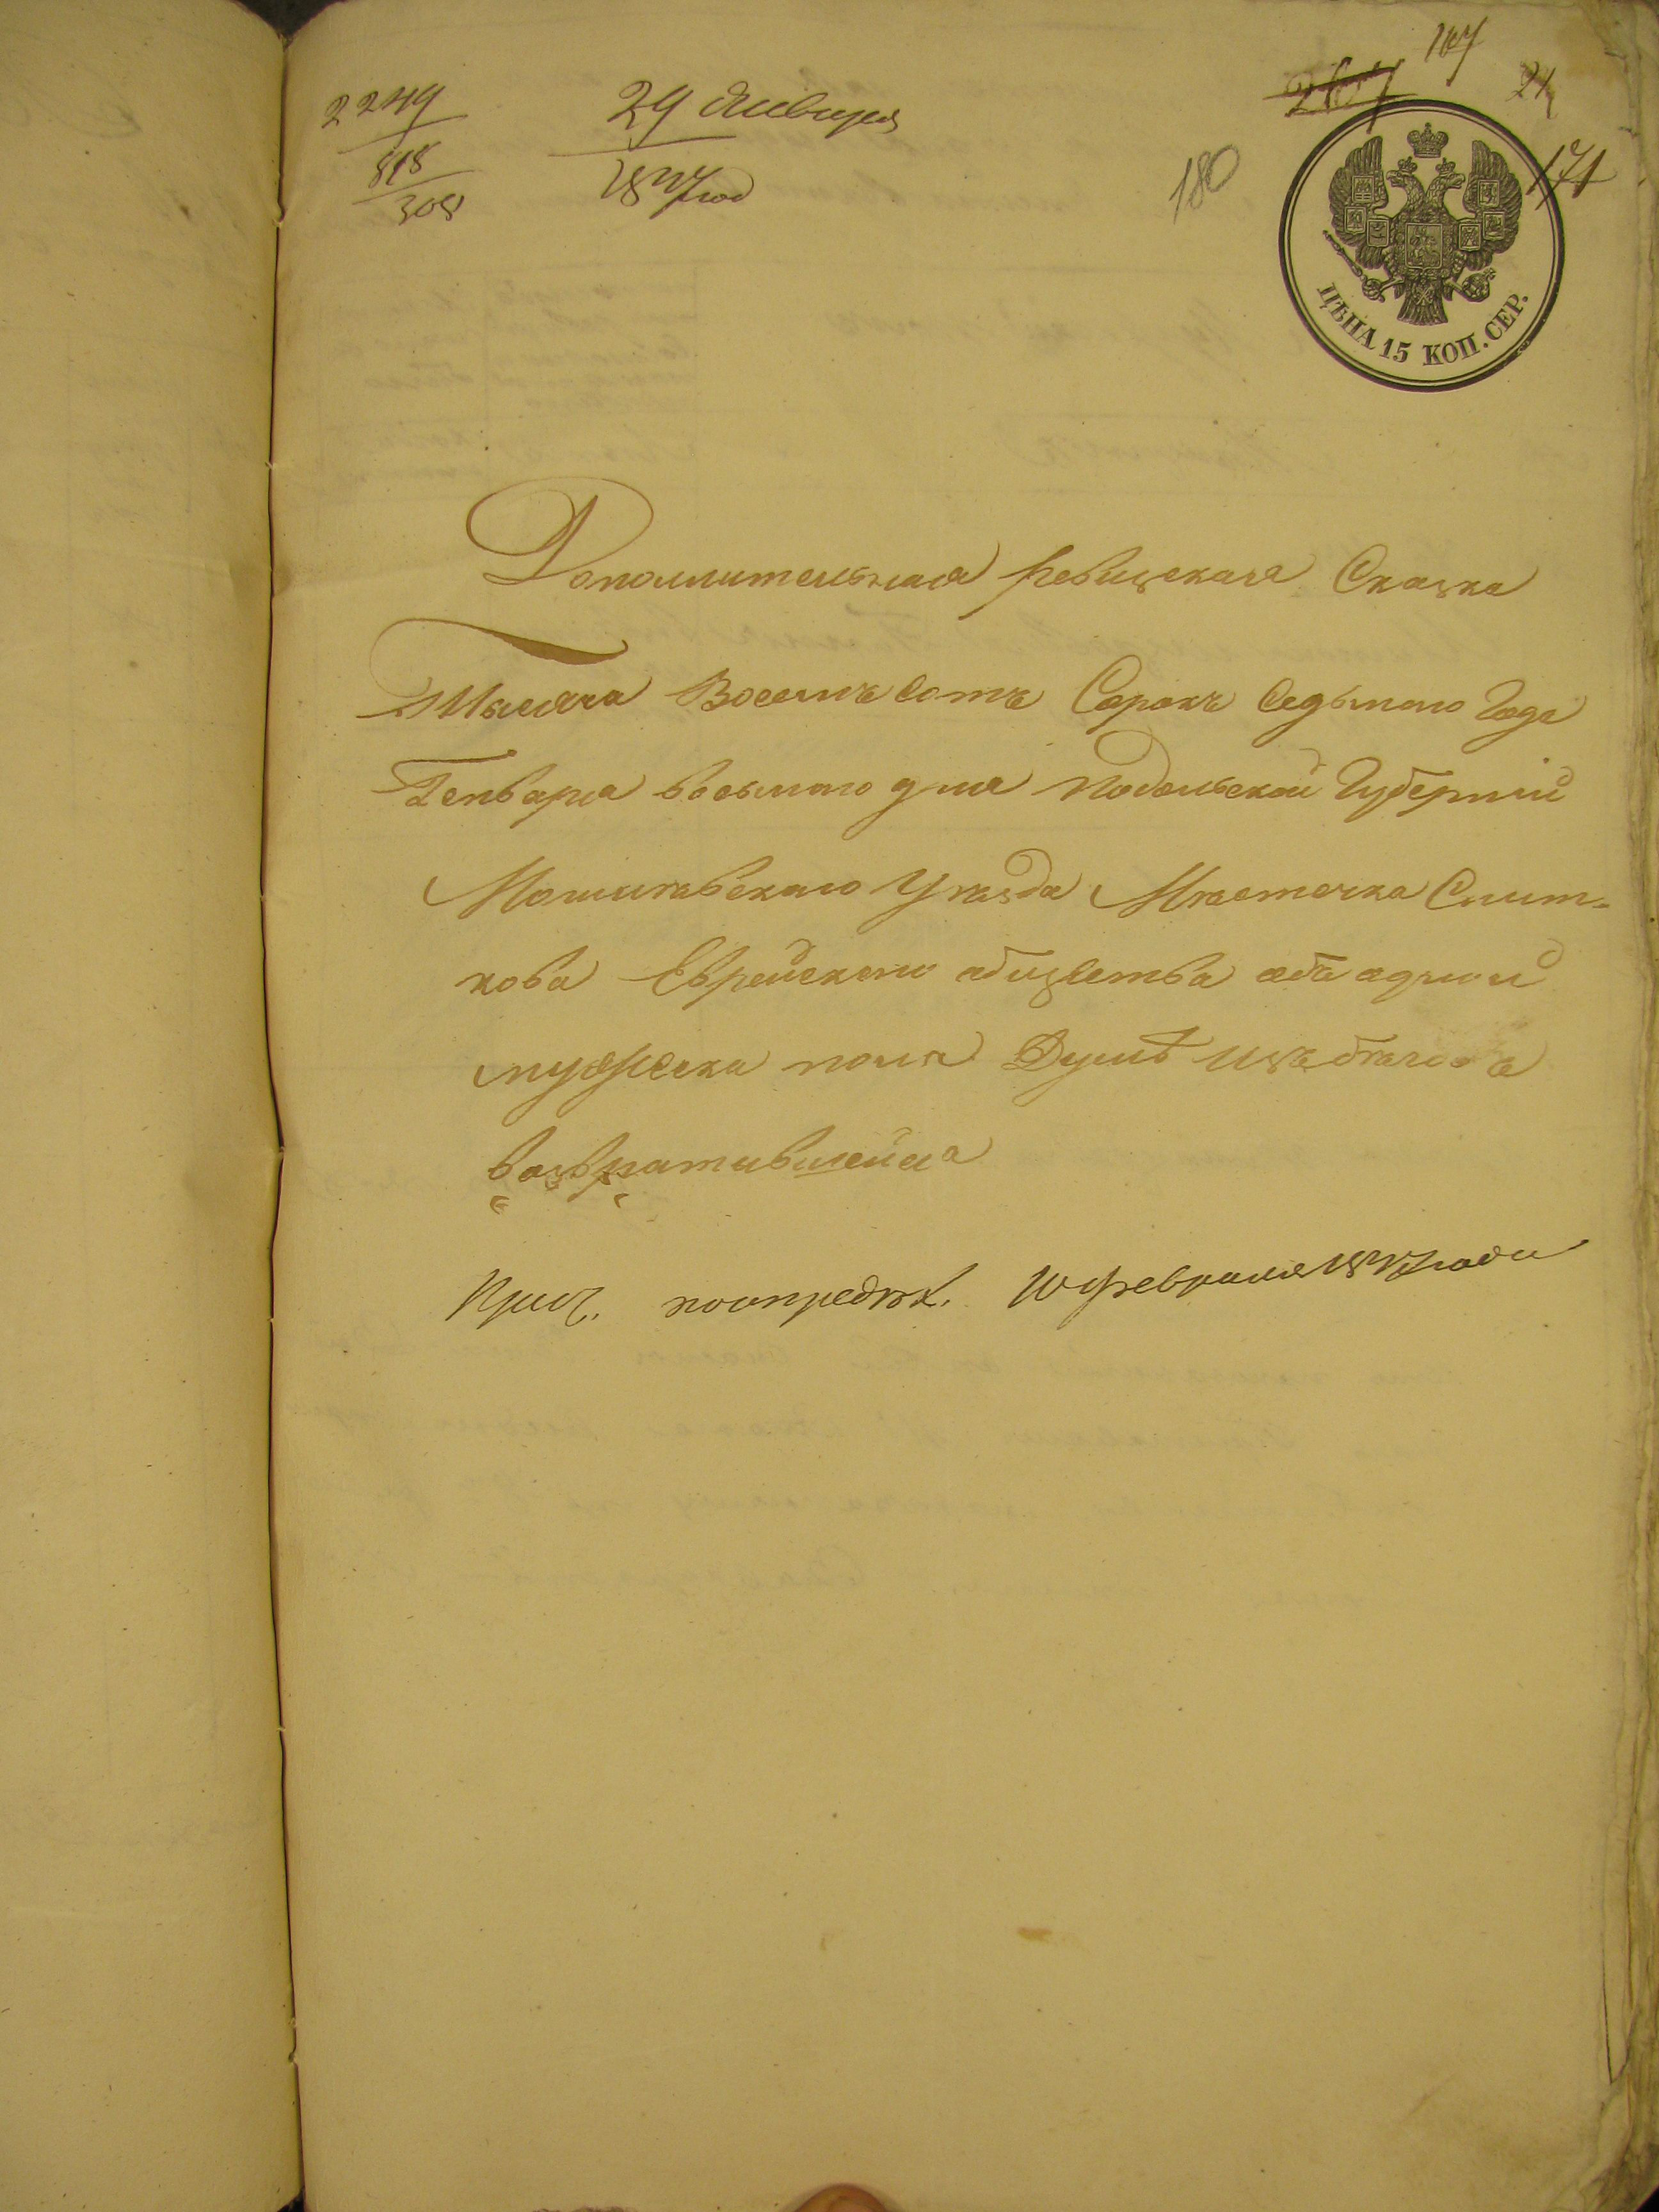 2249
818
305
29 Января
1847 год
180
167
21
171
ЦѢНА 15 КОП. СЕР.
Дополнительная ревизская Сказка
Тысяча Восемъ сотъ Сорокъ Седьмого Года
Генваря восьмого дня Подольской Губерніи
Могилевского Уѣзда Мѣстечка Снит-
кова Еврейского общества объ одной
мужеска пола Душѣ изъ бѣговъ
возвратившейся
10 февраля 1847 года